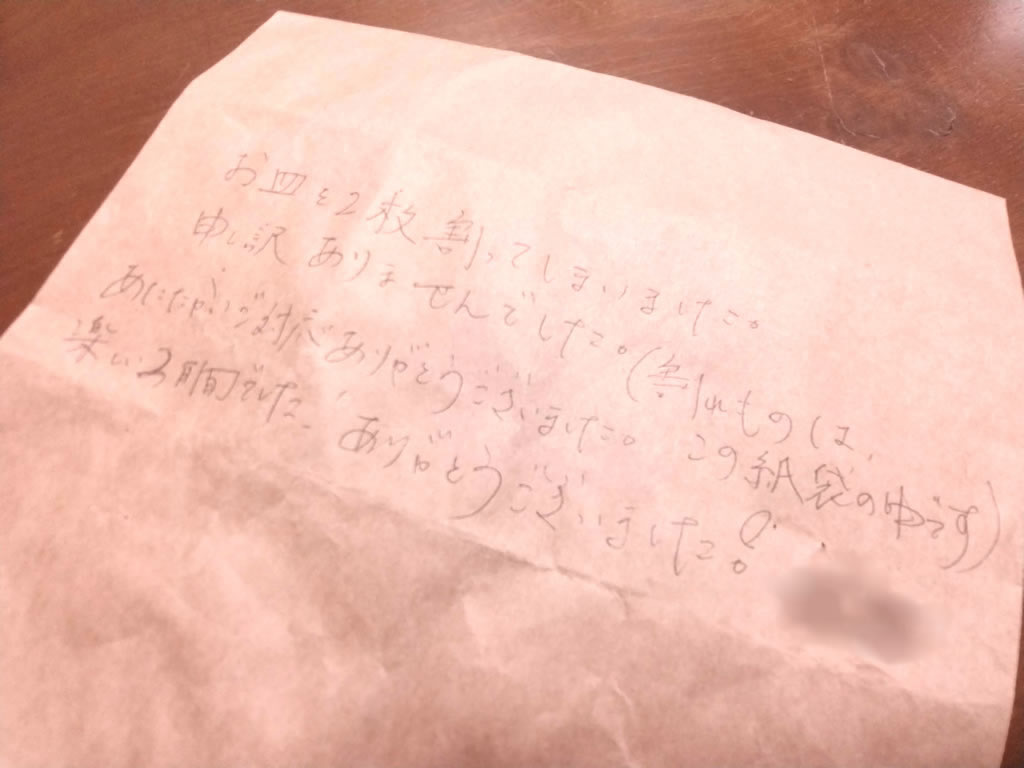 お皿を2枚割ってしまいました。
申し訳ありませんでした。(割れものは、
この紙袋の中です)
あたたかいご対応ありがとうございました。
楽しい2日間でした、ありがとうございました!